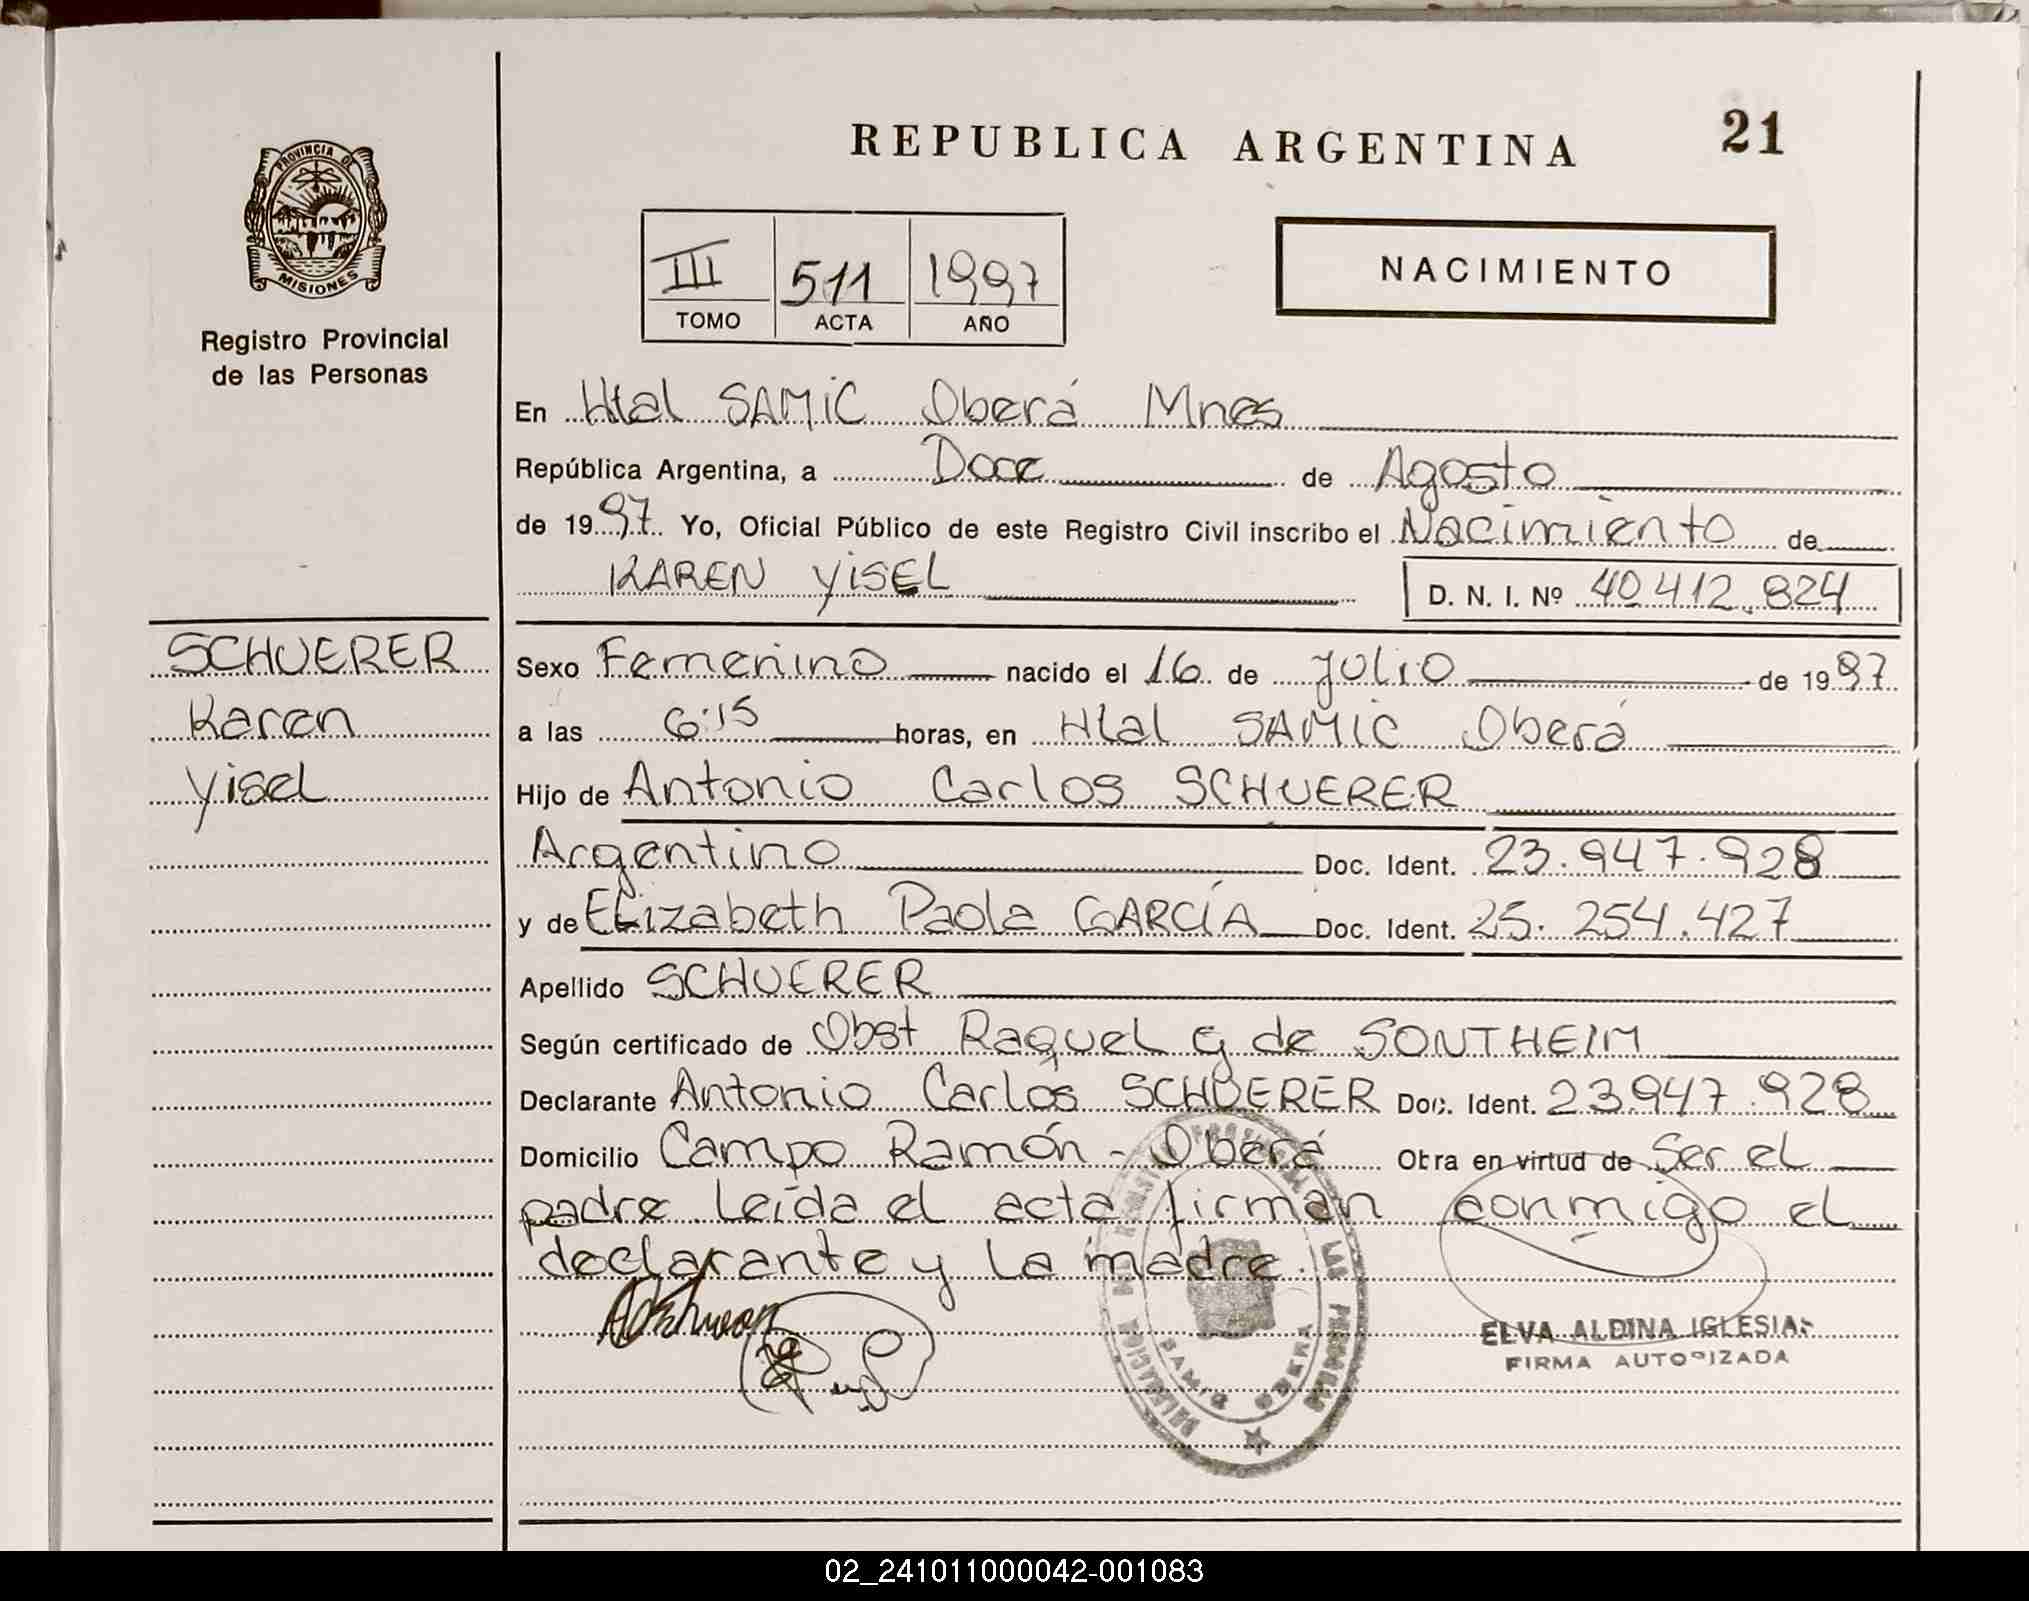 REPUBLICA ARGENTINA
21
PROVINCIA DE
MISIONES
Registro Provincial
de las Personas
III 511 1997
TOMO ACTA AÑO
NACIMIENTO
En Htal SAMIC Oberá Mnes
República Argentina, a Doce de Agosto
de 1997. Yo, Oficial Público de este Registro Civil inscribo el Nacimiento de
KAREN YISEL D. N. I. Nº 40.412.824
SCHUERER
Karen
Yisel
Sexo Femenino nacido el 16 de Julio de 1997
a las 6:15 horas, en Htal SAMIC Oberá
Hijo de Antonio Carlos SCHUERER
Argentino Doc. Ident. 23.947.928
y de Elizabeth Paola GARCÍA Doc. Ident. 25.254.427
Apellido SCHUERER
Según certificado de Obst Raquel G de SONTHEIM
Declarante Antonio Carlos SCHUERER Doc. Ident. 23.947.928
Domicilio Campo Ramón - Oberá Obra en virtud de Ser el
padre Leída el acta firman conmigo el
declarante y La madre.
ELVA ALDINA IGLESIAS
FIRMA AUTORIZADA
DELEGACION
SAMIC OBERA
02_241011000042-001083